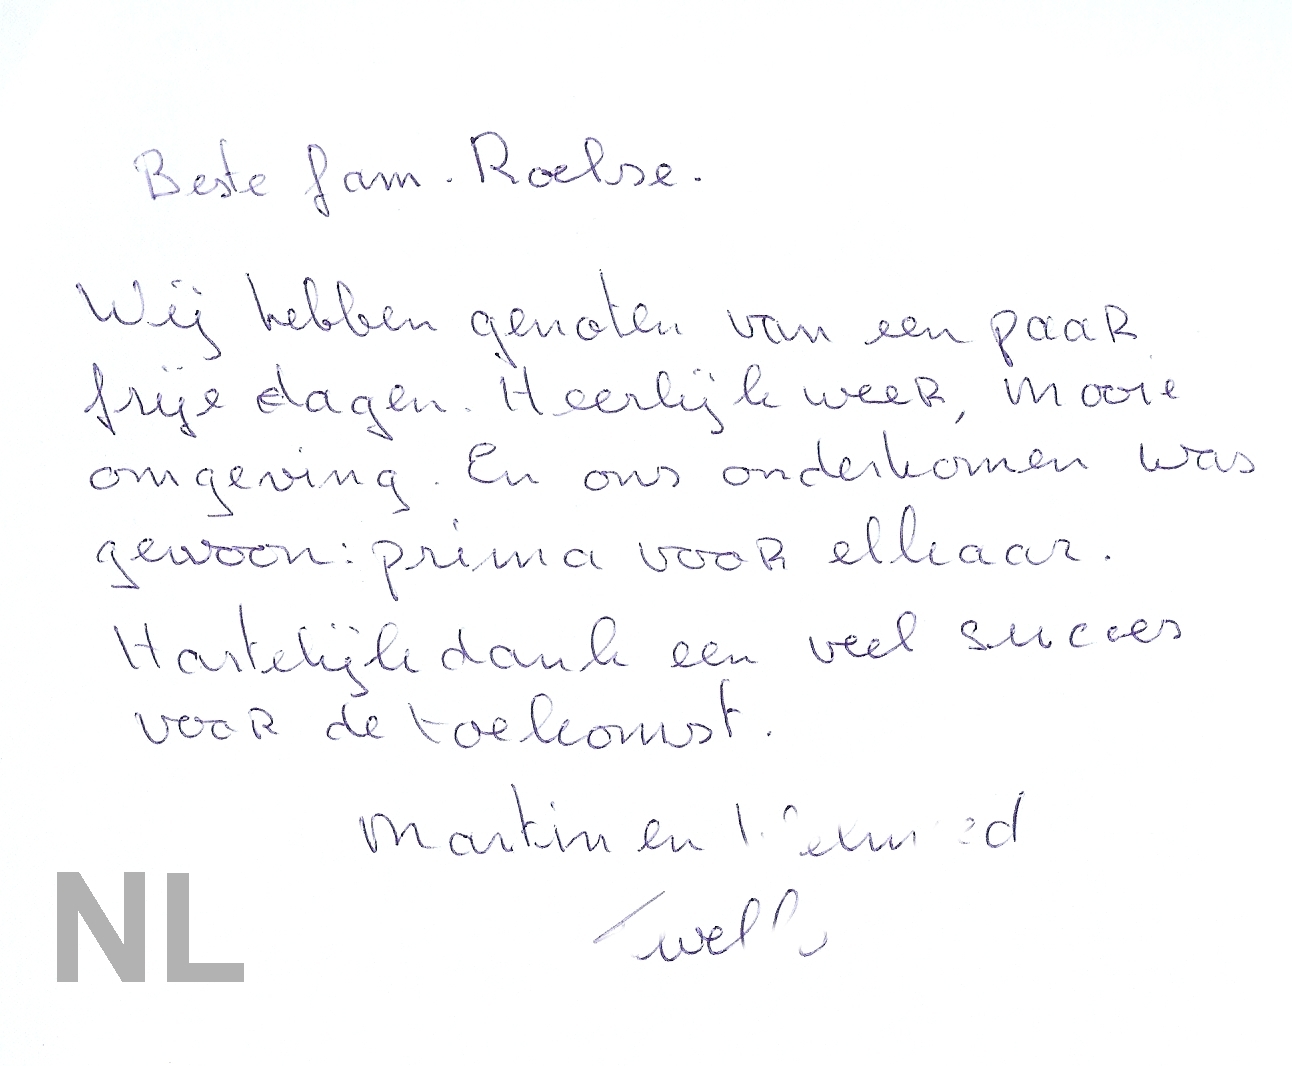 Beste fam. Roelse.
Wij hebben genoten van een paar
frije dagen. Heerlijk weer, mooie
omgeving. En ons onderkomen was
gewoon: prima voor elkaar.
Hartelijk dank een veel succes
voor de toekomst.
Martin en
NL